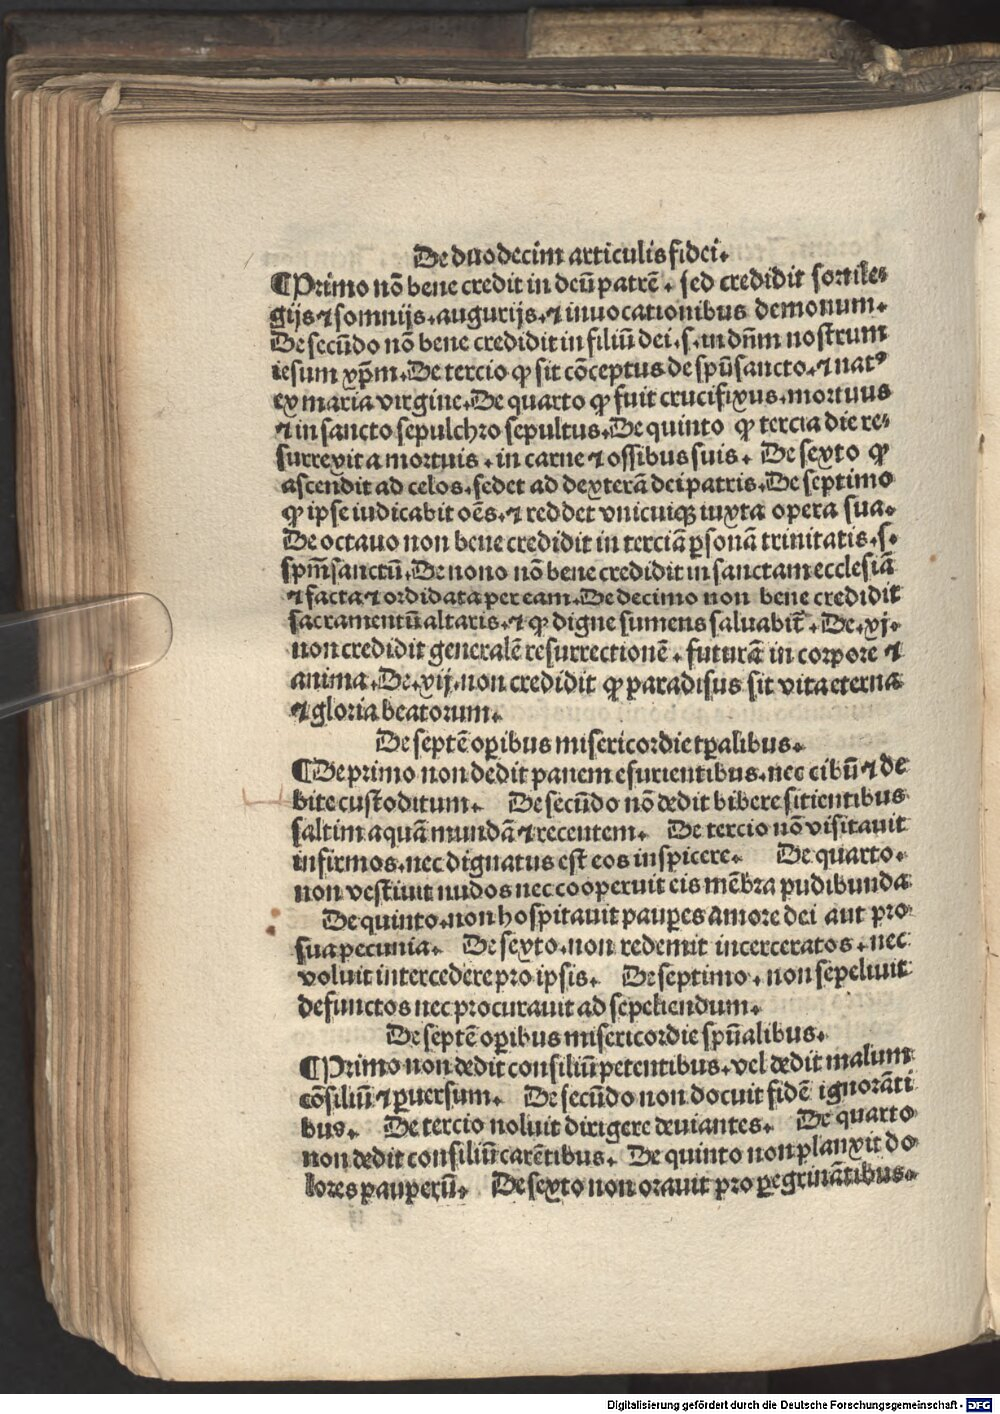 De duodecim articulis fidei.
¶Primo nō bene credit in deū patrē. sed credidit sortile⸗
gijs ⁊ somnijs. augurijs. ⁊ inuocationibus demonum.
De secūdo nō bene credidit in filiū dei. s. in dn̄m nostrum
iesum xp̄m. De tercio ꝙ sit cōceptus de spū sancto. ⁊ natꝰ
ex maria virgine. De quarto ꝙ fuit crucifixus. mortuus
⁊ in sancto sepulchro sepultus. De quinto ꝙ tercia die re⸗
surrexit a mortuis. in carne ⁊ ossibus suis. De sexto ꝙ
ascendit ad celos. sedet ad dexterā dei patris. De septimo
ꝙ ipse iudicabit oēs. ⁊ reddet vnicuiqꝫ iuxta opera sua.
De octauo non bene credidit in terciā ꝑsonā trinitatis. s.
spm̄ sanctū. De nono nō bene credidit in sanctam ecclesiā
⁊ facta ⁊ ordidata per eam. De decimo non bene credidit
sacramentū altaris. ⁊ ꝙ digne sumens saluabit̄. De. xj.
non credidit generalē resurrectionē. futurā in corpore ⁊
anima. De. xij. non credidit ꝙ paradisus sit vita eterna
⁊ gloria beatorum.
De septē oꝑibus misericordie tꝑalibus.
¶De primo non dedit panem esurientibus. nec cibū ⁊ de
bite custoditum. De secūdo nō dedit bibere sitientibus
saltim aquā mundā ⁊ recentem. De tercio nō visitauit
infirmos. nec dignatus est eos inspicere. De quarto.
non vestiuit nudos nec cooperuit eis mēbra pudibunda
De quinto. non hospitauit pauꝑes amore dei aut pro
sua pecunia. De sexto. non redemit incerceratos. nec
voluit intercedere pro ipsis. De septimo. non sepeliuit
defunctos nec procurauit ad sepeliendum.
De septē oꝑibus misericordie spūalibus.
¶Primo non dedit consiliū petentibus. vel dedit malum
cōsiliū ⁊ ꝑuersum. De secūdo non docuit fidē ignorāti
bus. De tercio noluit dirigere deuiantes. De quarto
non dedit consiliū carētibus. De quinto non planxit do
lores pauperū. De sexto non orauit pro ꝑegrinātibus.
Digitalisierung gefördert durch die Deutsche Forschungsgemeinschaft - DFG